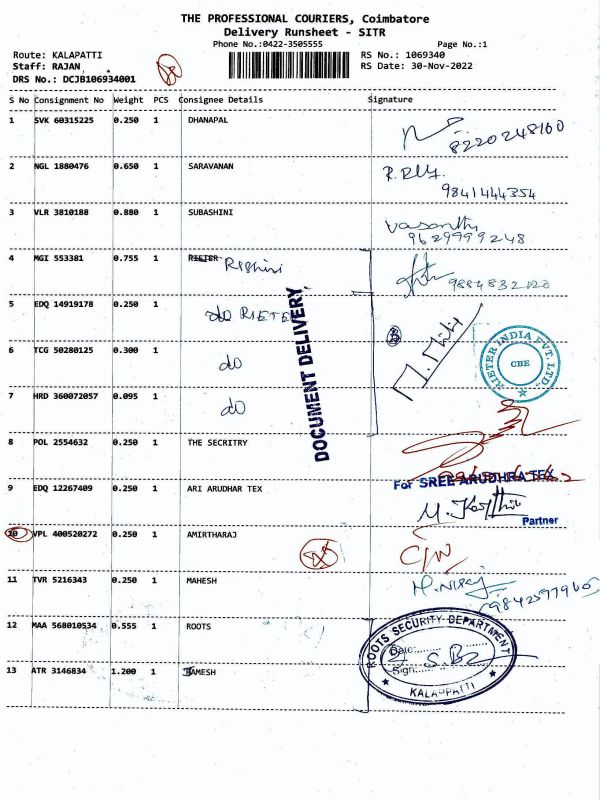 THE PROFESSIONAL COURIERS, Coimbatore
Delivery Runsheet - SITR
Phone No.:0422-3505555 Page No.:1
Route: KALAPATTI RS No.: 1069340
Staff: RAJAN RS Date: 30-Nov-2022
DRS No.: DCJB106934001
S No Consignment No Weight PCS Consignee Details Signature
1 SVK 60315225 0.250 1 DHANAPAL
8220248160
2 NGL 1880476 0.650 1 SARAVANAN
9841444354
3 VLR 3810188 0.880 1 SUBASHINI Vasanthi
9629999248
4 MGI 553381 0.755 1 RIETER Rishini
9884832120
5 EDQ 14919178 0.250 1 do RIETE
6 TCG 50280125 0.300 1 do
7 HRD 360072057 0.095 1 do
DOCUMENT DELIVERY
RIETER INDIA PVT. LTD.
CBE
8 POL 2554632 0.250 1 THE SECRITRY
For SREE ARUDHRA TEX
9 EDQ 12267409 0.250 1 ARI ARUDHAR TEX
Partner
10 VPL 400520272 0.250 1 AMIRTHARAJ
11 TVR 5216343 0.250 1 MAHESH
12 MAA 568010534 0.555 1 ROOTS
ROOTS SECURITY DEPARTMENT
Date:
Sign:
KALAPATTI
13 ATR 3146834 1.200 1 RAMESH